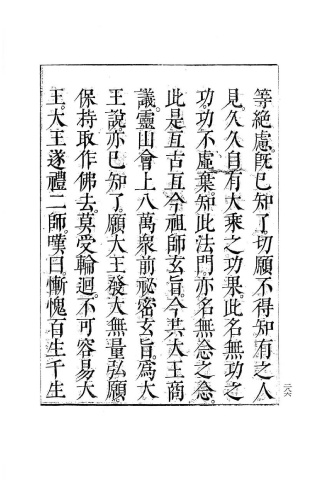 等絶慮旣已知了切願不得知有之人
見久久自有大乘之功果此名無功之
功功不虛棄知此法門亦名無念之念
此是亙古亙今祖師玄旨今共大王商
議靈山會上八萬衆前祕密玄旨爲大
王說亦已知了願大王發大無量弘願
保持取作佛去莫受輪迴不可容易大
王大王遂禮二師嘆曰慚愧百生千生
二八六